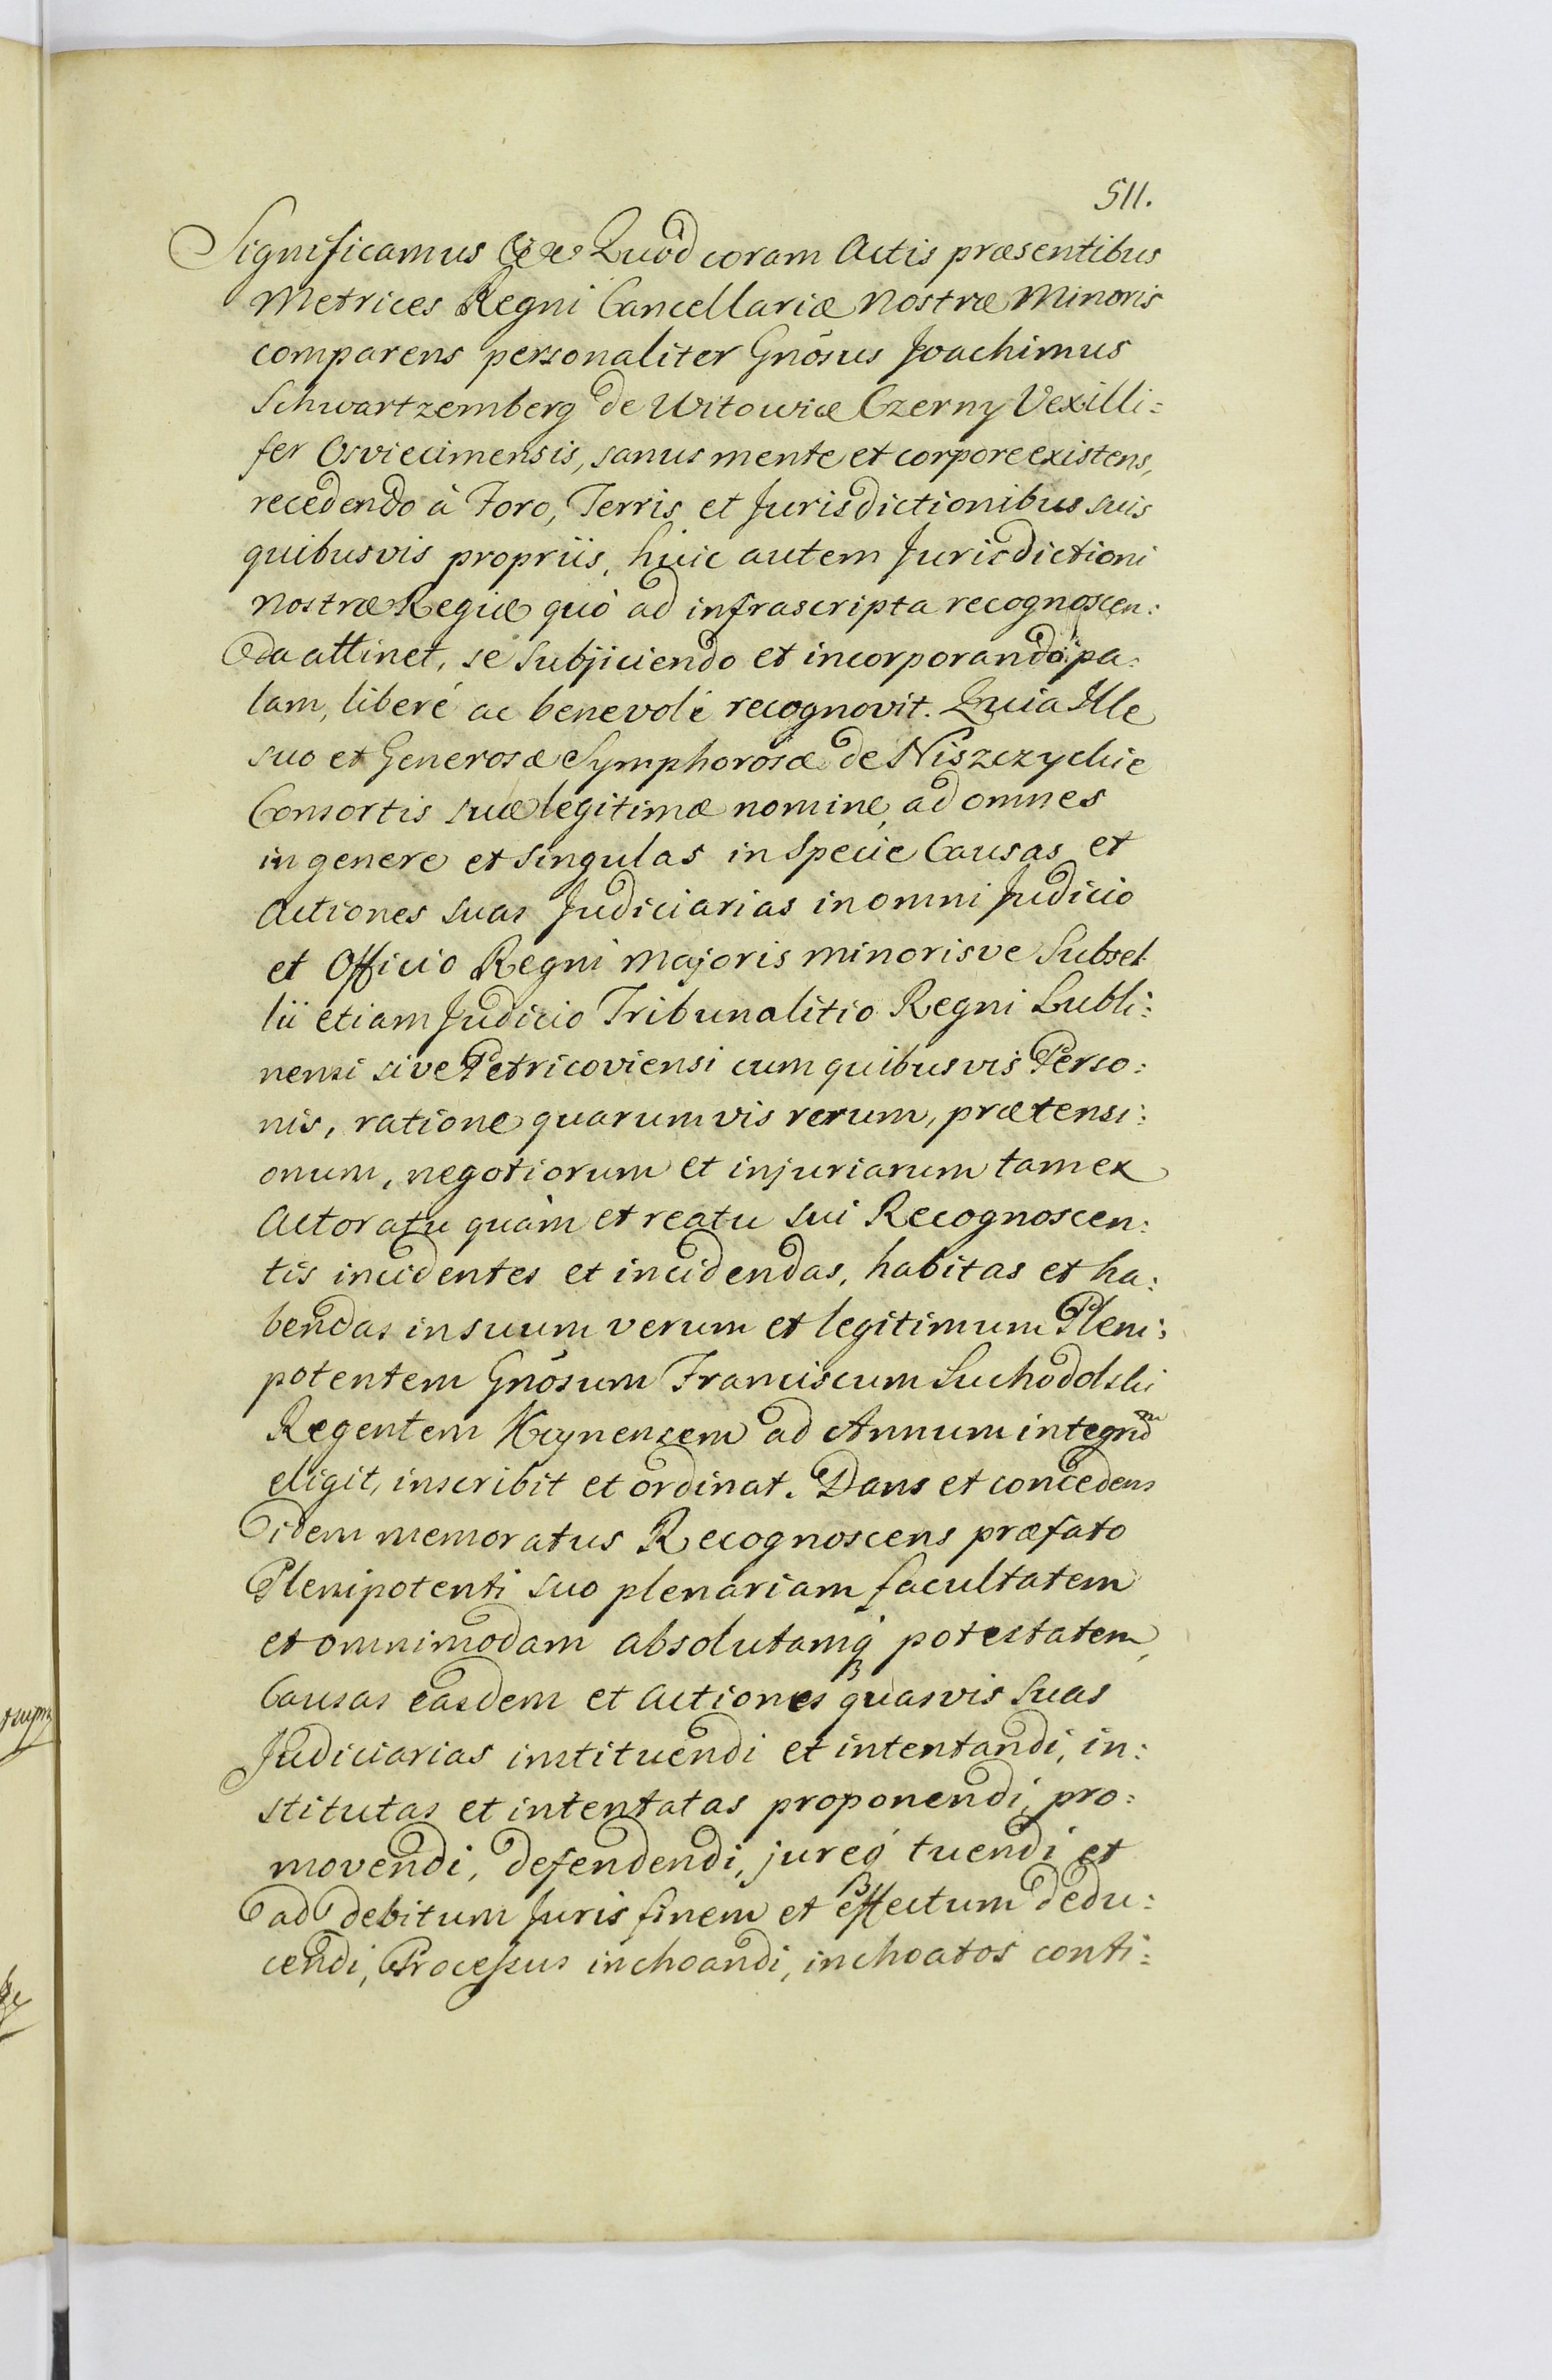 511.
Significamus &c Quod coram Actis præsentibus
Metrices Regni Cancellariæ Nostræ Minoris
comparens personaliter Gnōsus Joachimus
Schwartzemberg de Witowice Czerny Vexilli:
fer Osviecimensis, sanus mente et corpore existens,
recedendo à Foro, Terris et Jurisdictionibus suis
quibusvis propriis, huic autem Jurisdictioni
Nostræ Regiæ quò ad infrascripta recognoscen:
da attinet, se subjiciendo et incorporando; pa:
lam, liberé ac benevolé recognovit. Quia Ille
suo et Generosæ Symphorosæ de Niszczyckie
Consortis suæ legitimæ nomine, ad omnes
in genere et singulas in specie Causas et
Actiones suas Judiciarias in omni Judicio
et Officio Regni Majoris minorisve Subsel
lii etiam Judicio Tribunalitio Regni Lubli:
nensi sive Petricoviensi cum quibusvis Perso:
nis, ratione quarumvis rerum, prætensi:
onum, negotiorum et injuriarum tam ex
Actoratu quàm et reatu sui Recognoscen:
tis incidentes et incidendas, habitas et ha:
bendas in suum verum et legitimum Pleni:
potentem Gnōsum Franciscum Suchodolski
Regentem ad Annum integrū
eligit, inscribit et ordinat. Dans et concedens
idem memoratus Recognoscens præfato
Plenipotenti suo plenariam facultatem
et omnimodam absolutamq; potestatem,
Causas easdem et Actiones quasvis suas
Judiciarias instituendi et intentandi, in:
stitutas et intentatas proponendi, pro:
movendi, defendendi, jureq; tuendi et
ad debitum Juris finem et effectum dedu:
cendi, Processus inchoandi, inchoatos conti: